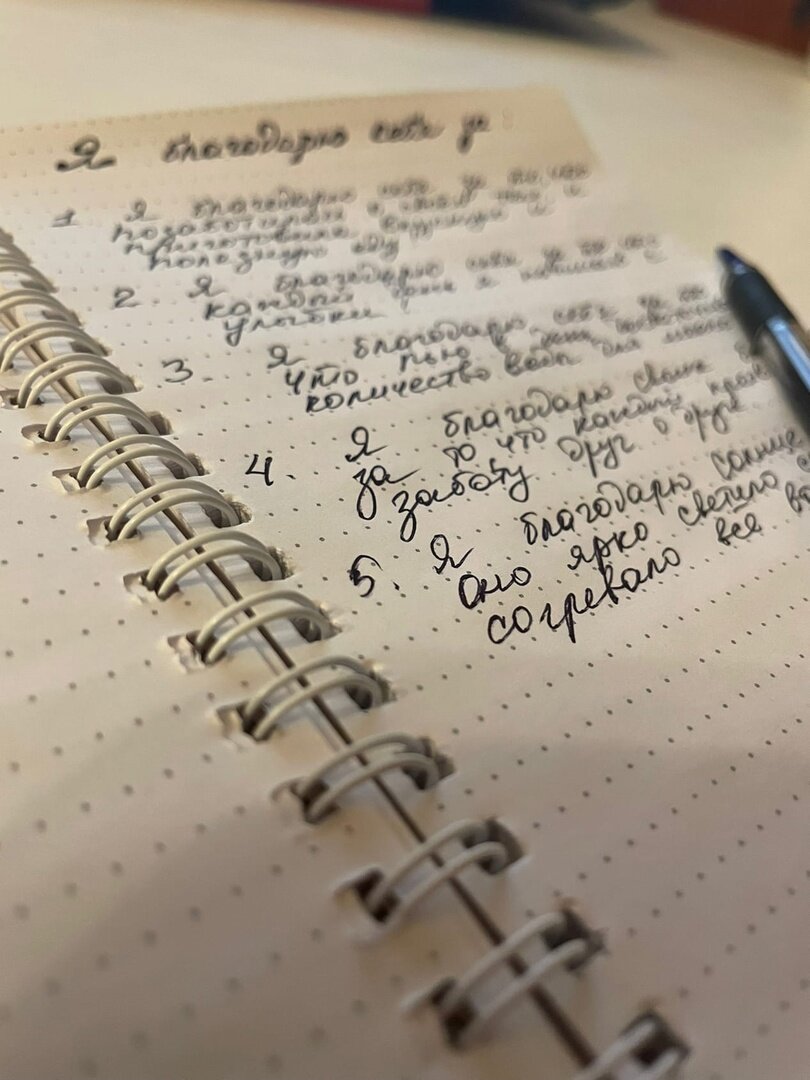 Я благодарю себя за:
1. Я благодарю себя за то, что
позаботилась о своём и
приготовила вкусную и
полезную еду
2. Я благодарю себя за то что
каждый день я начинаю с
улыбки
3. Я благодарю себя за то
что пью в день
количество воды для
4. Я благодарю своих
за то, что каждый
заботу друг о друге
5. Я благодарю солнце
оно ярко светило
согревало всё